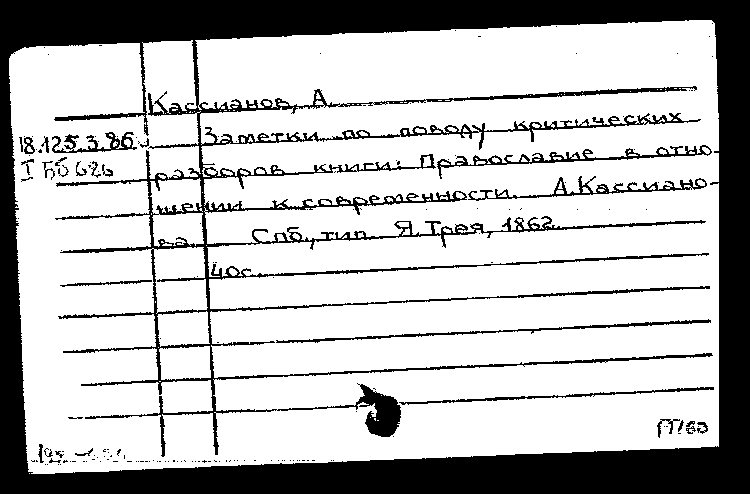 Кассианов, А.
18.125.3.86 Заметки по поводу критических
I Бб 626 разборов книги: Православие в отно-
шении к современности. А. Кассиано-
ва Спб., тип. Я. Трея, 1862.
40с.